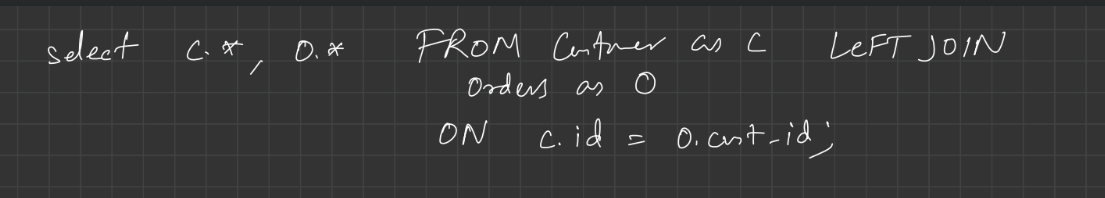 select c.*, O.* FROM Customer as C LEFT JOIN
Orders as O
ON c.id = O.cust-id;